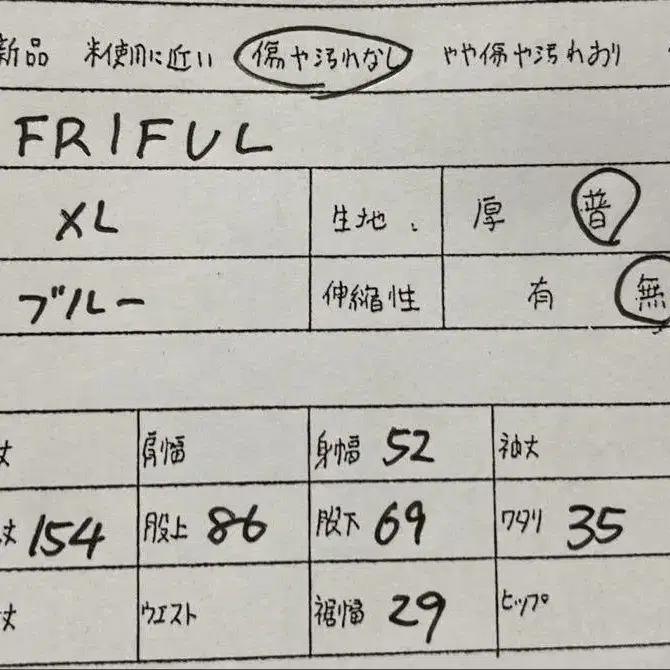 新品 未使用に近い 傷や汚れなし やや傷や汚れあり
FRIFUL
XL 生地 厚 普
ブルー 伸縮性 有 無
丈 肩幅 身幅 52 袖丈
丈 154 股上 86 股下 69 ワタリ 35
丈 ウエスト 裾幅 29 ヒップ